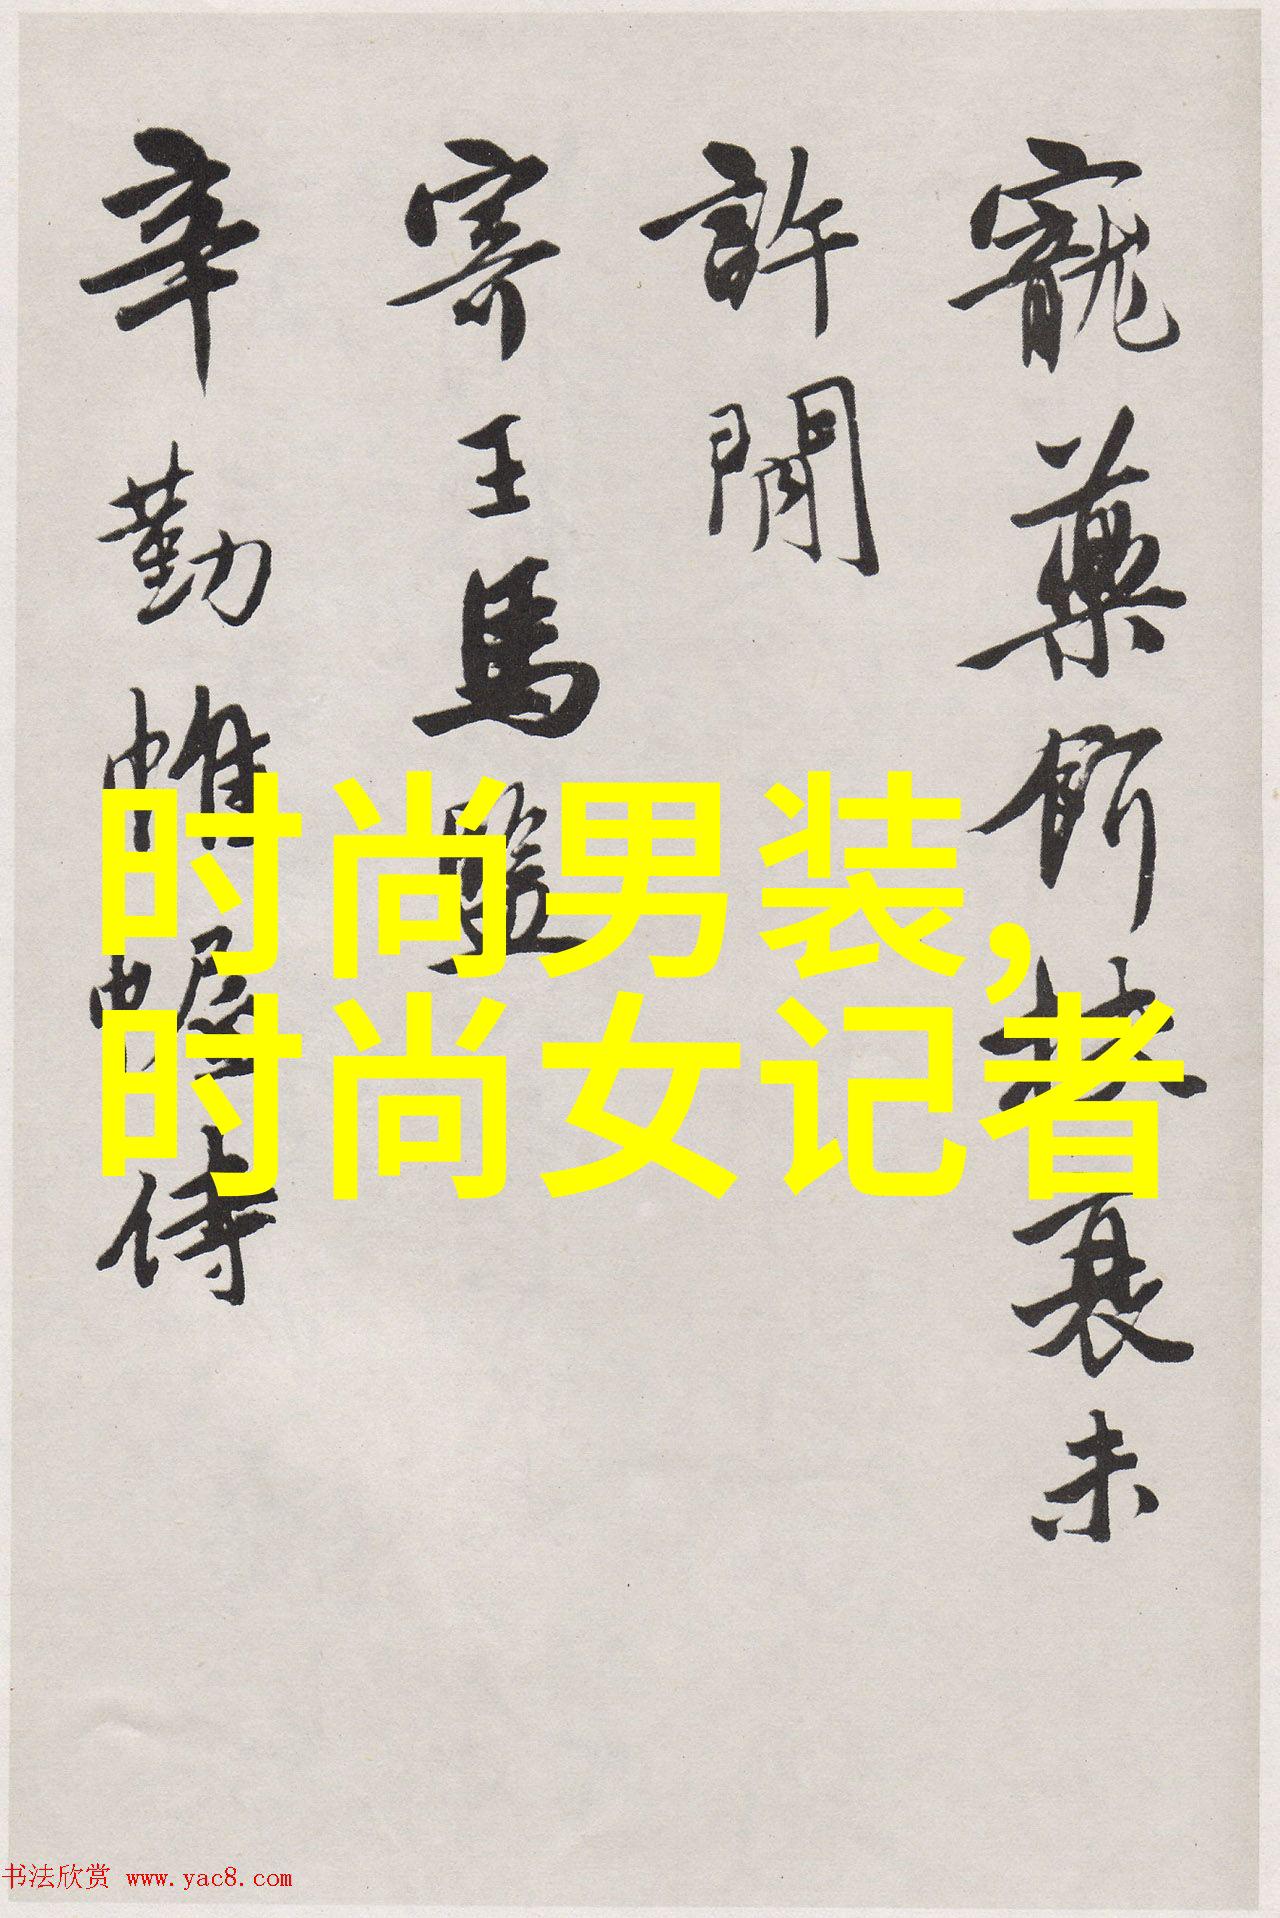 寵藥餌扶衰未
許閒
寄王馬監
辛勤帷幄侍
时尚男装,
时尚女记者
书法欣赏 www.yac8.com